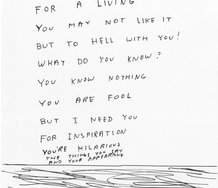 FOR A LIVING
YOU MAY NOT LIKE IT
BUT TO HELL WITH YOU!
WHAT DO YOU KNOW?
YOU KNOW NOTHING
YOU ARE FOOL
BUT I NEED YOU
FOR INSPIRATION
YOU'RE HILARIOUS
THE THINGS YOU SAY
AND YOUR APPEARANCE